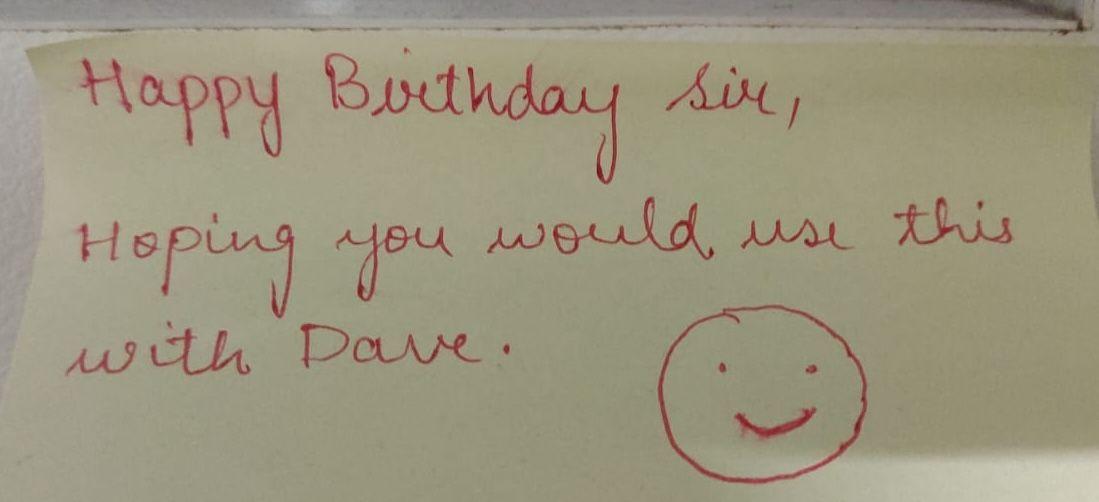 Happy Birthday sir,
Hoping you would use this
with Dave.